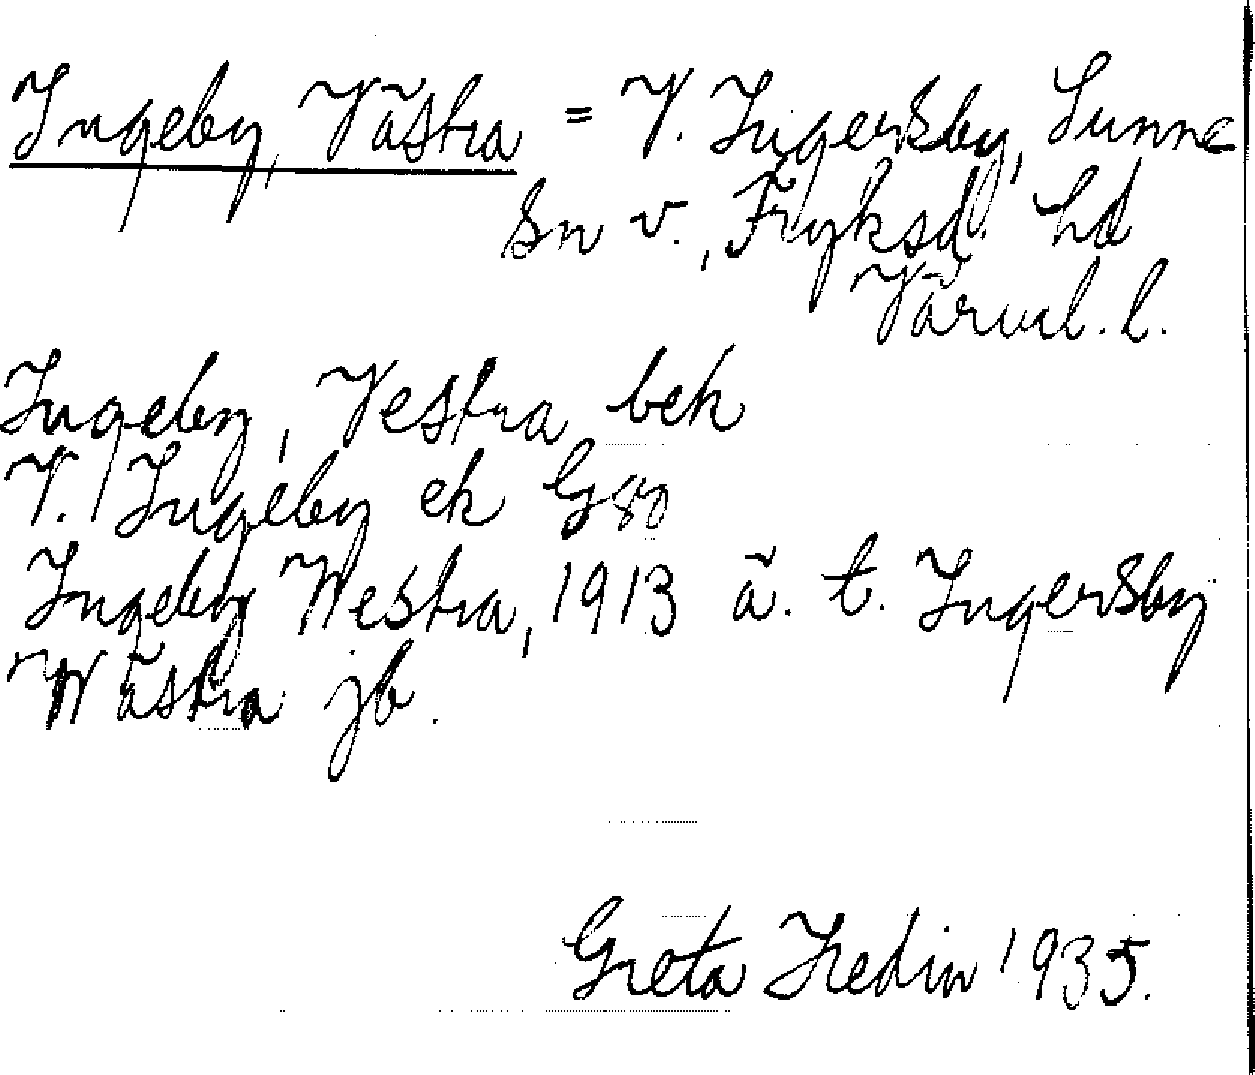 Ingeby, Västra = V. Ingersby, Sunne
sn v., Fryksd. hd
Värml. l.
Ingeby, Vestra bek
V. Ingeby ek G80
Ingeby Westra, 1913 ä. t. Ingersby
Wästra jb.
Greta Hedin 1935.